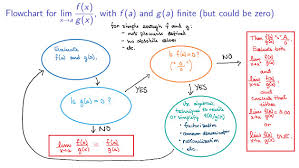 Flowchart for lim x→a f(x)/g(x), with f(a) and g(a) finite (but could be zero)
for simple enough f and g:
- not piecewise defined
- no absolute values
- etc.
Evaluate
f(a) and g(a).
Is f(a)=0?
("0/0")
NO
Is g(a)=0?
YES
YES
NO
lim x→a f(x)/g(x) = f(a)/g(a)
Use algebraic
techniques to
or simplify f(x)/g(x)
• factorization
• common denominator
• rationalization
• etc.
Then
Evaluate both
lim x→a⁻ f(x)/g(x)
and
lim x→a⁺ f(x)/g(x)
and
conclude that
either
lim x→a f(x)/g(x)
or
lim x→a f(x)/g(x) DNE.